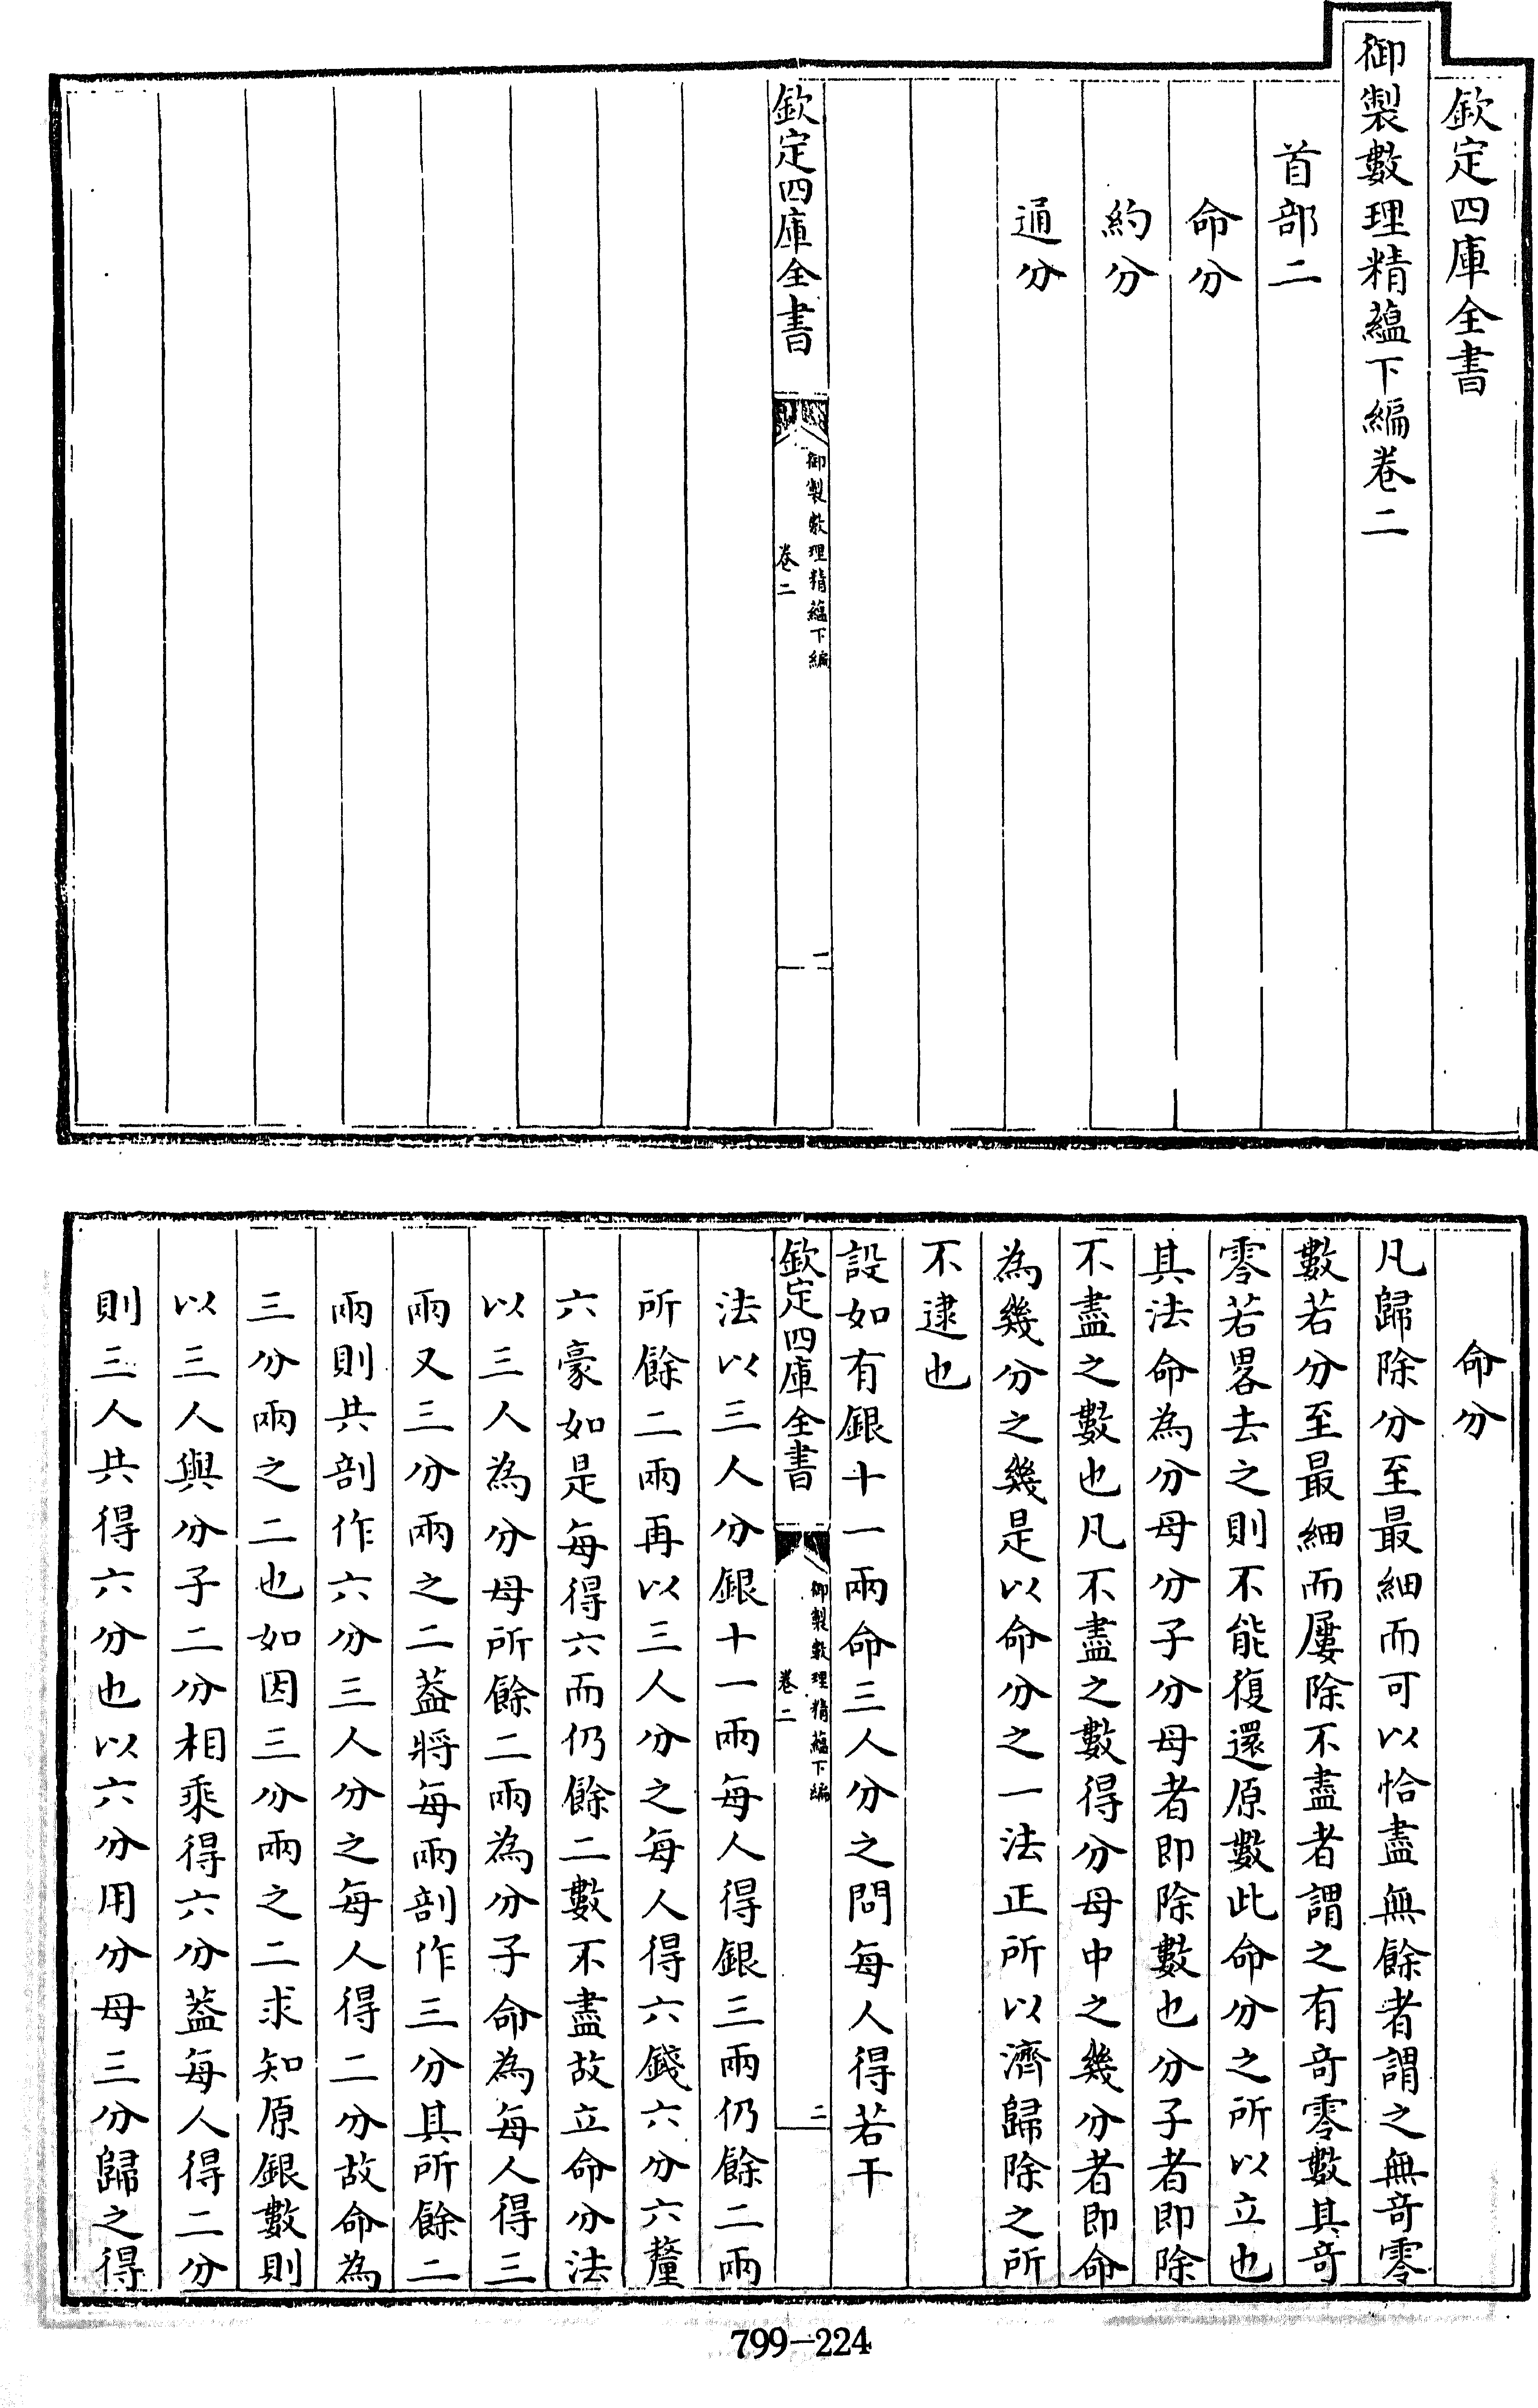 欽定四庫全書
御製數理精蘊下編卷二
首部二
命分
約分
通分
欽定四庫全書
御製數理精蘊下編
卷二
一
命分
凡歸除分至最細而可以恰盡無餘者謂之無奇零
數若分至最細而屢除不盡者謂之有奇零數其奇
零若畧去之則不能復還原數此命分之所以立也
其法命為分母分子分母者即除數也分子者即除
不盡之數也凡不盡之數得分母中之幾分者即命
為幾分之幾是以命分之一法正所以濟歸除之所
不逮也
設如有銀十一兩命三人分之問每人得若干
欽定四庫全書
御製數理精蘊下編
卷二
二
法以三人分銀十一兩每人得銀三兩仍餘二兩
所餘二兩再以三人分之每人得六錢六分六釐
六豪如是每得六而仍餘二數不盡故立命分法
以三人為分母所餘二兩為分子命為每人得三
兩又三分兩之二葢將每兩剖作三分其所餘二
兩則共剖作六分三人分之每人得二分故命為
三分兩之二也如因三分兩之二求知原銀數則
以三人與分子二分相乘得六分葢每人得二分
則三人共得六分也以六分用分母三分歸之得
799-224